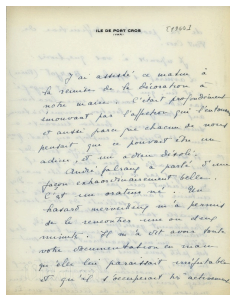 [1944]
ILE DE PORT-CROS
(VAR)
J'ai assisté, ce matin à
la remise de la décoration à
notre maire. C'était profondément
émouvant par l'affection qui l'entoure
et aussi parce que chacun de nous
pensait que ce pouvait être un
adieu, et un adieu désolé.
André falray a parlé d'une
façon extraordinairement belle.
C'est un orateur né. Un
hasard merveilleux m'a permis
de le rencontrer une ou deux
minutes. Il m'a dit avoir toute
votre documentation en main
qu'elle lui paraissait irréfutable
et qu'il s'occuperait très activement